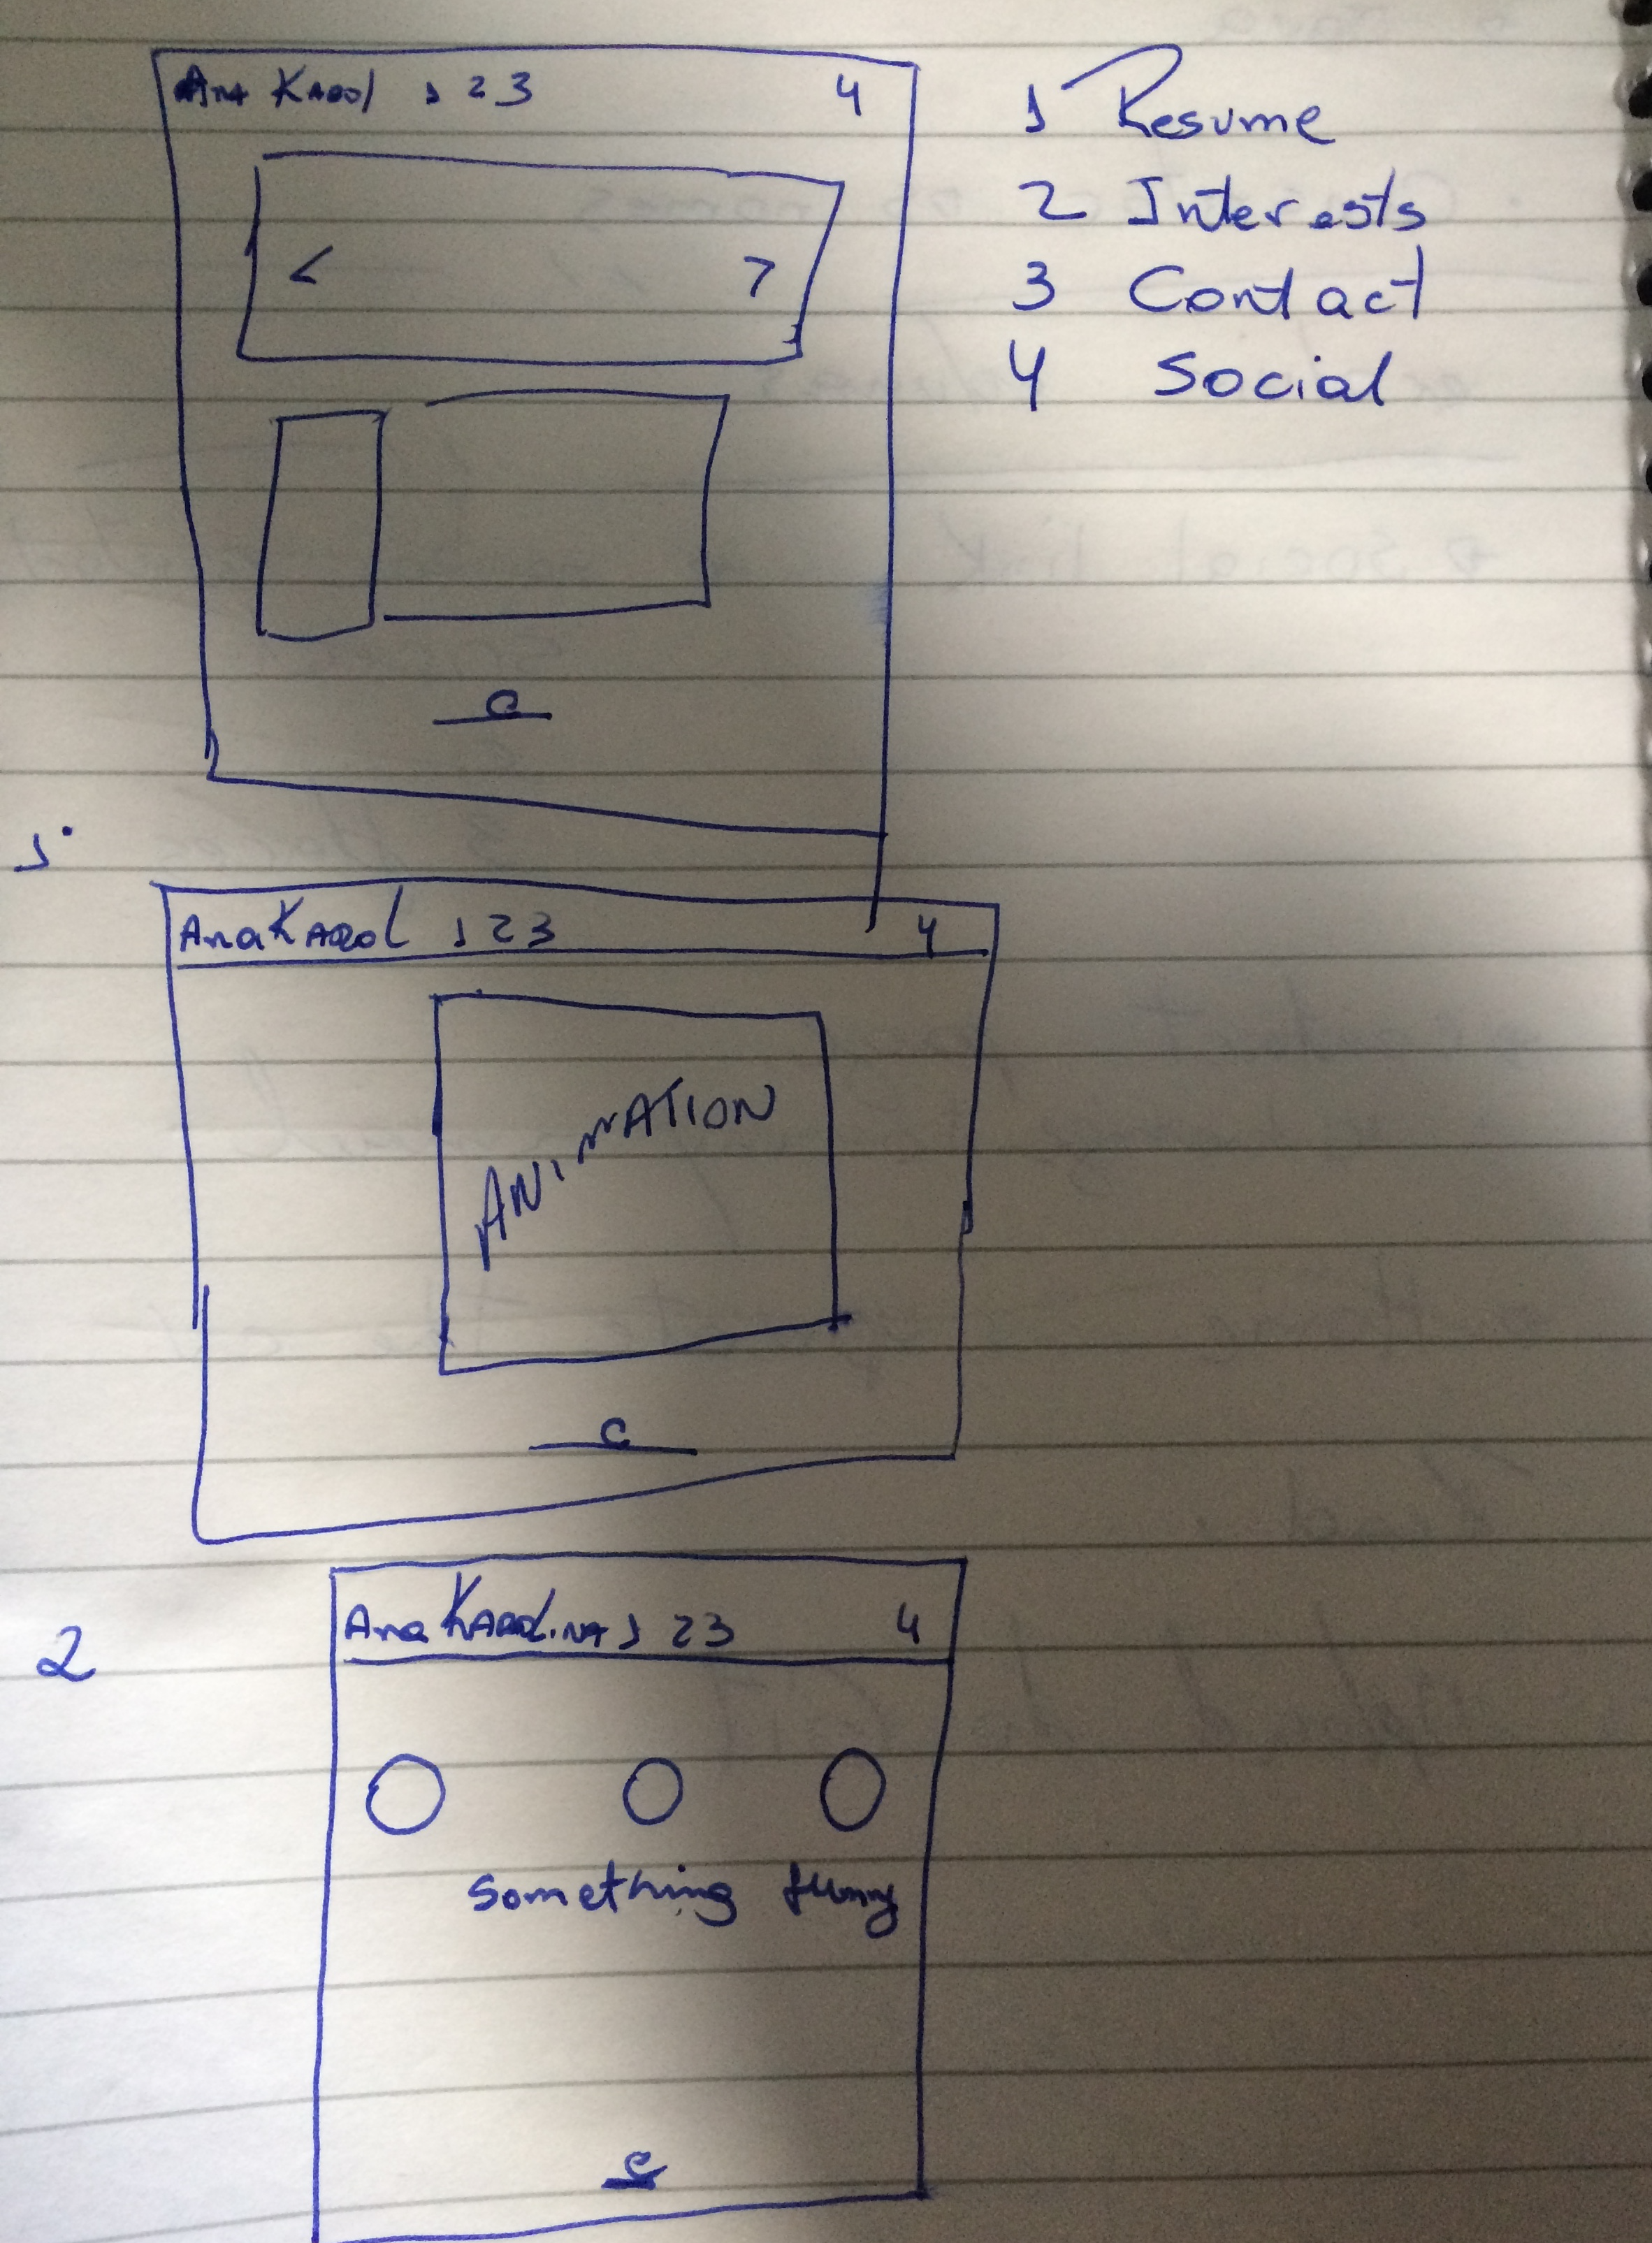 Ana Karol 1 2 3 4
1 Resume
2 Interests
3 Contact
4 Social
< >
c
1.
Ana Karol 1 2 3 4
ANIMATION
c
2
Ana Karolina 1 2 3 4
something funny
c